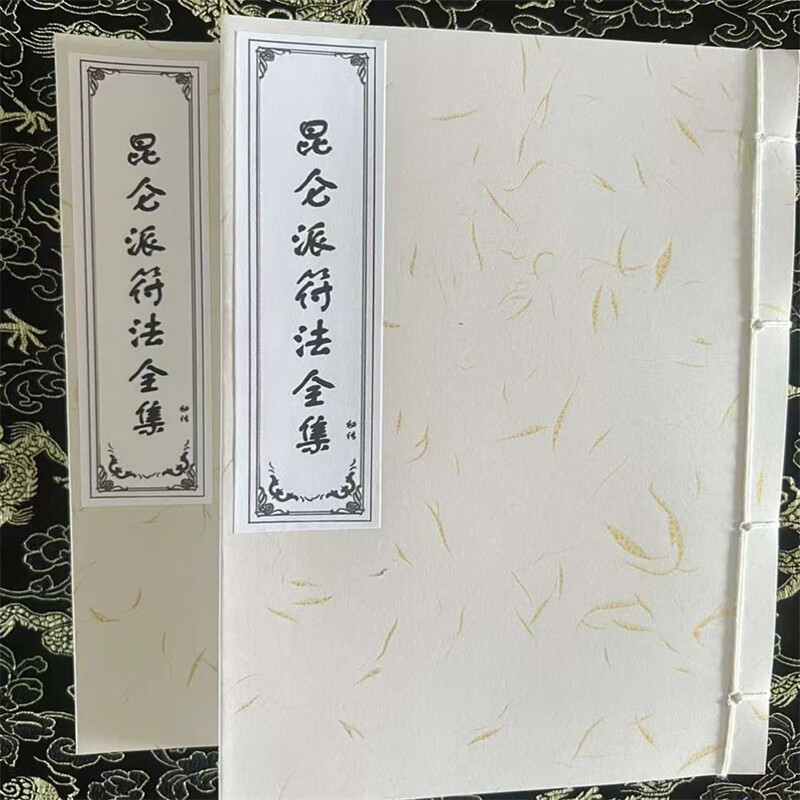 昆仑派符法全集
秘传
昆仑派符法全集
秘传